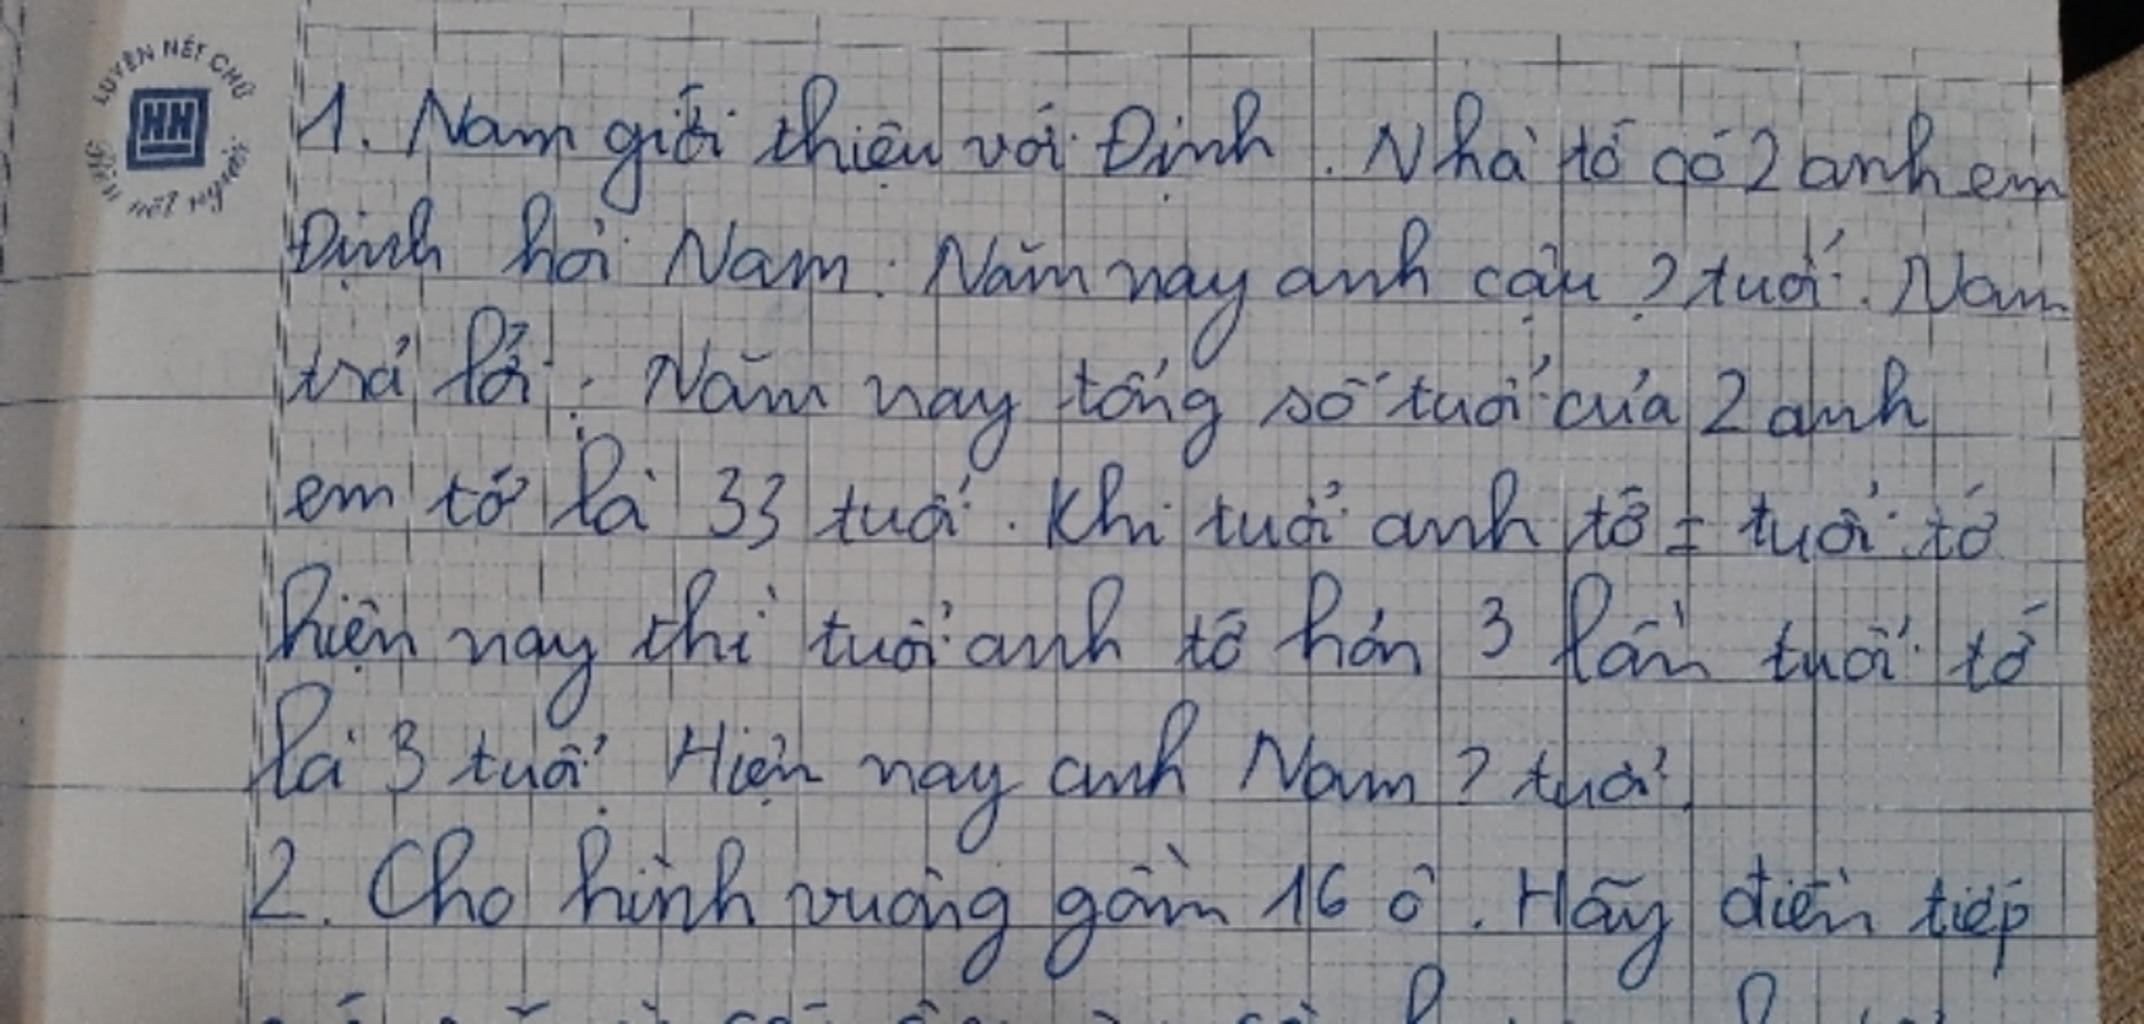 LUYỆN NÉT CHỮ
HH
1. Nam giới thiệu với Định. Nhà tớ có 2 anh em
Định hỏi Nam: Năm nay anh cậu ? tuổi. Nam
trả lời: Năm nay tổng số tuổi của 2 anh
em tớ là 33 tuổi. Khi tuổi anh tớ = tuổi tớ
hiện nay thì tuổi anh tớ hơn 3 lần tuổi tớ
là 3 tuổi. Hiện nay anh Nam ? tuổi.
2. Cho hình vuông gồm 16 ô. Hãy điền tiếp